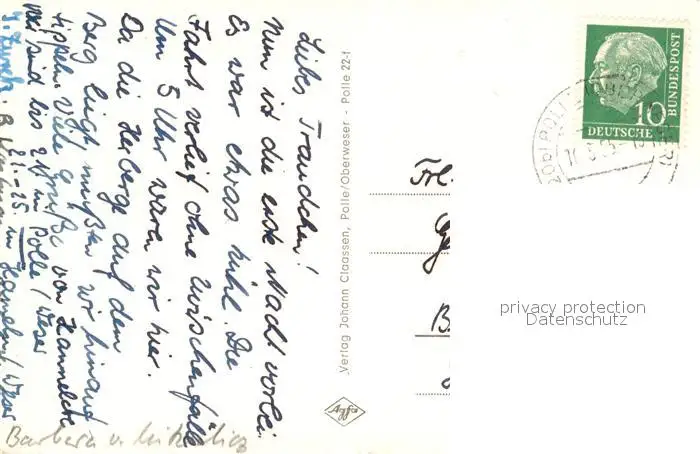 Liebes Traudchen!
Nun ist die erste Nacht vorbei.
Es war etwas kühl. Die
Fahrt verlief ohne Zwischenfälle
Um 5 Uhr waren wir hier.
Da die Herberge auf dem
Berg liegt mußten wir hinauf
tippeln. Viele Grüße von Hannelore
wir sind bis 21. in Polle/Weser
21.-25. in Hameln/Weser
Barbara v.
Verlag Johann Claassen, Polle/Oberweser - Polle 22-f
Agfa
Frl.
B
10
DEUTSCHE
BUNDESPOST
POLLE
privacy protection
Datenschutz